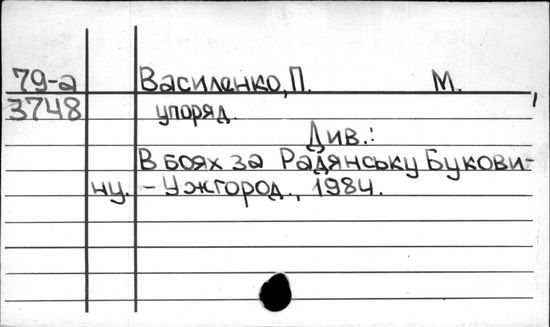 79-а Василенко, П. М.,
3748 упоряд.
Див.:
В боях за Радянську Букови-
ну. - Ужгород., 1984.